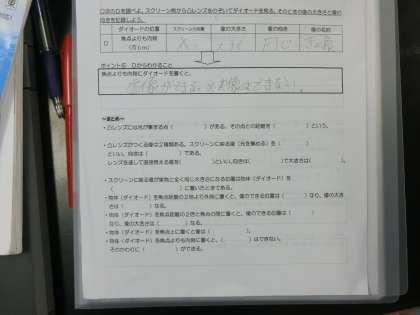 ○③のDを調べよ。スクリーン側から凸レンズをのぞいてダイオードを見る。そのときの像の大きさと像の向きを記録しよう。
ダイオードの位置 スクリーンの位置 像の大きさ 像の向き 像の名称
D 焦点よりも内側 同じ
ポイント⑤ Dからわかること
焦点よりも内側にダイオードを置くと、
できない。
～まとめ～
・凸レンズには光が集まる点（ ）がある。その点との距離を（ ）という。
・凸レンズがつくる像は２種類ある。スクリーンに映る像（光を集める）を（ ）
といい、向きは（ ）である。
レンズを通して直接見える像を（ ）といい、向きは（ ）で大きさは（ ）。
・スクリーンに映る像が実物と全く同じ大きさになる位置は物体（ダイオード）を
（ ）に置いたときである。
・物体（ダイオード）を焦点距離の２倍より外側に置くと、像のできる位置は（ ）なり、像の大きさは（ ）なる。
・物体（ダイオード）を焦点距離の２倍と焦点の間に置くと、像のできる位置は（ ）なり、像の大きさは（ ）なる。
・物体（ダイオード）を焦点上に置くと像は（ ）。
・物体（ダイオード）を焦点よりも内側に置くと、（ ）はできない。
そのかわりに（ ）ができる。